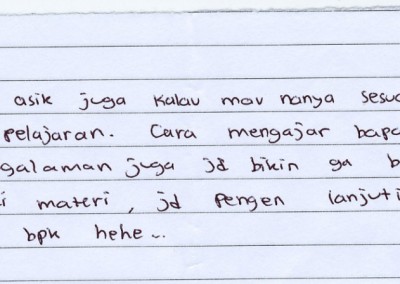 asik juga kalau mau nanya sesua
pelajaran. Cara mengajar bapa
galaman juga jd bikin ga b
i materi, jd pengen lanjuti
bpk hehe..